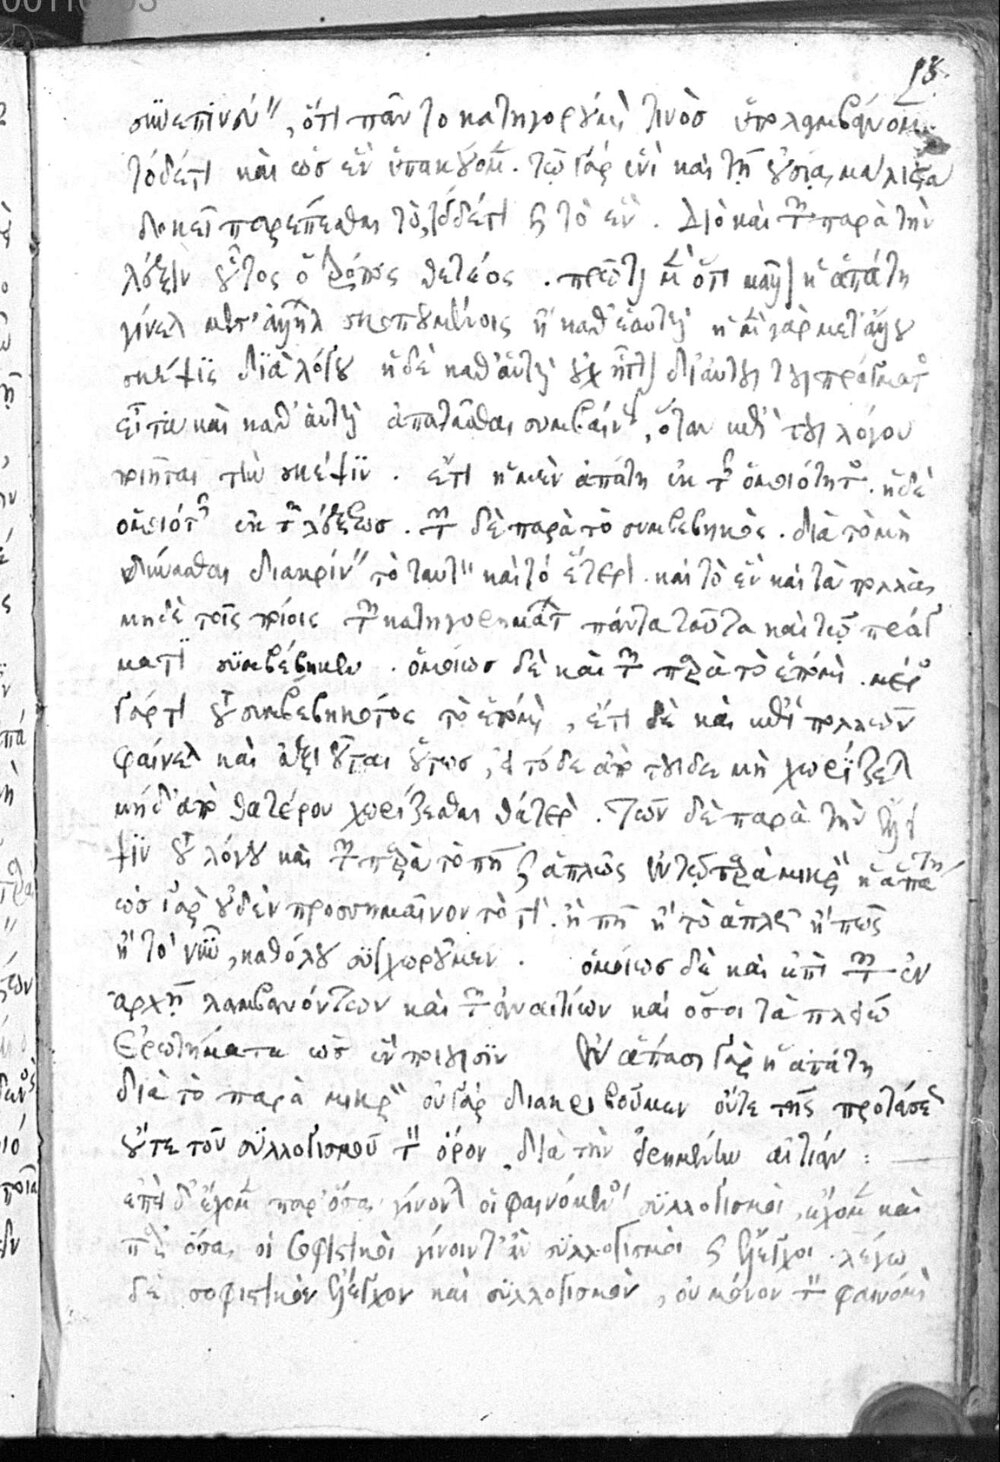 συνεπινεύειν, ὅτι πᾶν τὸ κατηγορούμενόν τινος ὑπολαμβάνομεν
τόδε τι καὶ ὡς ἓν ὑπακούομεν. τῷ γὰρ ἑνὶ καὶ τῇ οὐσίᾳ μάλιστα
δοκεῖ παρέπεσθαι τὸ τόδέτι καὶ τὸ ἕν. διὸ καὶ τῶν παρὰ τὴν
λέξιν οὗτος ὁ τρόπος θετέος. πρῶτον μὲν ὅτι μᾶλλον ἡ ἀπάτη
γίνεται μετ' ἄλλων σκοπουμένοις ἢ καθ' ἑαυτούς ἡ μὲν γὰρ μετ' ἄλλου
σκέψις διὰ λόγου ἡ δὲ καθ' αὑτὸν οὐχ ἧττον δι' αὐτοῦ τοῦ πράγματος
εἶτα καὶ καθ' αὑτὸν ἀπατᾶσθαι συμβαίνει, ὅταν ἐπὶ τοῦ λόγου
ποιῆται τὴν σκέψιν. ἔτι ἡ μὲν ἀπάτη ἐκ τῆς ὁμοιότητος. ἡ δὲ
ὁμοιότης ἐκ τῆς λέξεως. τῶν δὲ παρὰ τὸ συμβεβηκὸς. διὰ τὸ μὴ
δύνασθαι διακρίνειν τὸ ταυτὸν καὶ τὸ ἕτερον. καὶ τὸ ἓν καὶ τὰ πολλὰ
μηδὲ τοῖς ποίοις τῶν κατηγορημάτων πάντα ταῦτα καὶ τῷ πράγ
ματι συμβέβηκεν. ὁμοίως δὲ καὶ τῶν παρὰ τὸ ἑπόμενον. μέρος
γάρ τι τοῦ συμβεβηκότος τὸ ἑπόμενον, ἔτι δὲ καὶ ἐπὶ πολλῶν
φαίνεται καὶ ἀξιοῦται οὕτως, εἰ τόδε ἀπὸ τοῦδε μὴ χωρίζεται
μήδ' ἀπὸ θατέρου χωρίζεσθαι θάτερον. τῶν δὲ παρὰ τὴν ἔλλει
ψιν τοῦ λόγου καὶ τῶν παρὰ τὸ πῆ καὶ ἁπλῶς ἐν τῷ παρὰ μικρὸν ἡ ἀπάτη
ὡς γὰρ οὐδὲν προσσημαῖνον τὸ τὶ ἢ πῆ ἢ τὸ ἁπλῶς ἢ πῶς
ἢ τὸ νῦν, καθόλου συγχωροῦμεν. ὁμοίως δὲ καὶ ἐπὶ τῶν ἐν
ἀρχῇ λαμβανόντων καὶ τῶν ἀναιτίων καὶ ὅσοι τὰ πλείω
ἐρωτήματα ὡς ἓν ποιοῦσιν ἐν ἅπασι γὰρ ἡ ἀπάτη
διὰ τὸ παρὰ μικρὸν οὐ γὰρ διακριβοῦμεν οὔτε τῆς προτάσεως
οὔτε τοῦ συλλογισμοῦ τὸν ὅρον διὰ τὴν εἰρημένην αἰτίαν:
ἐπεὶ δ' ἔχομεν παρ' ὅσα γίνονται οἱ φαινόμενοι συλλογισμοὶ, ἔχομεν καὶ
παρ' ὅσα οἱ σοφιστικοὶ γίνοιντ' ἂν συλλογισμοὶ καὶ ἔλεγχοι. λέγω
δὲ σοφιστικὸν ἔλεγχον καὶ συλλογισμὸν, οὐ μόνον τὸν φαινόμενον